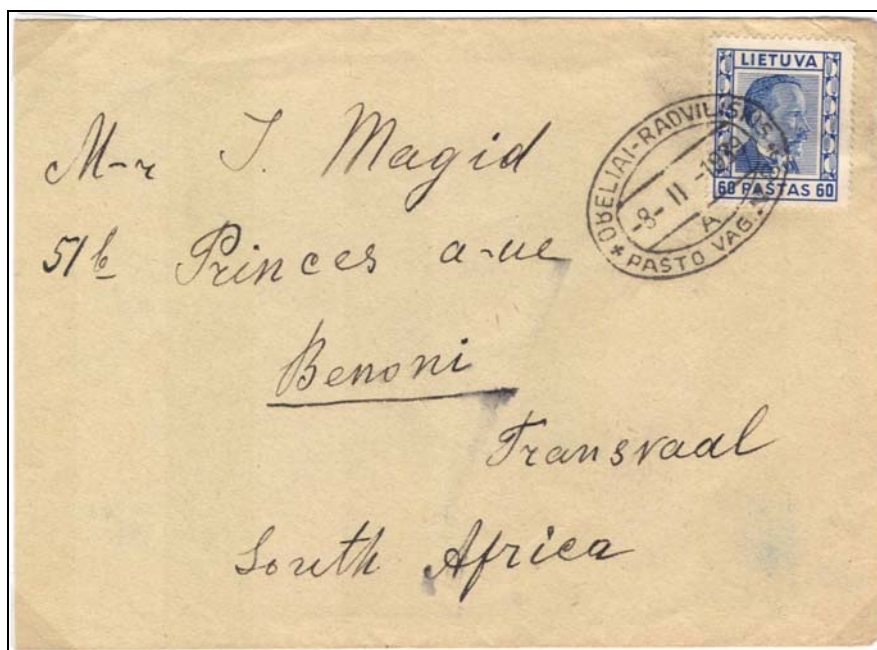 LIETUVA
60 PASTAS 60
OBELIAI-RADVILIŠKIS
-8-II-1939
A
* PASTO VAG.
M-r J. Magid
51b Princes a-ue
Benoni
Transvaal
South Africa